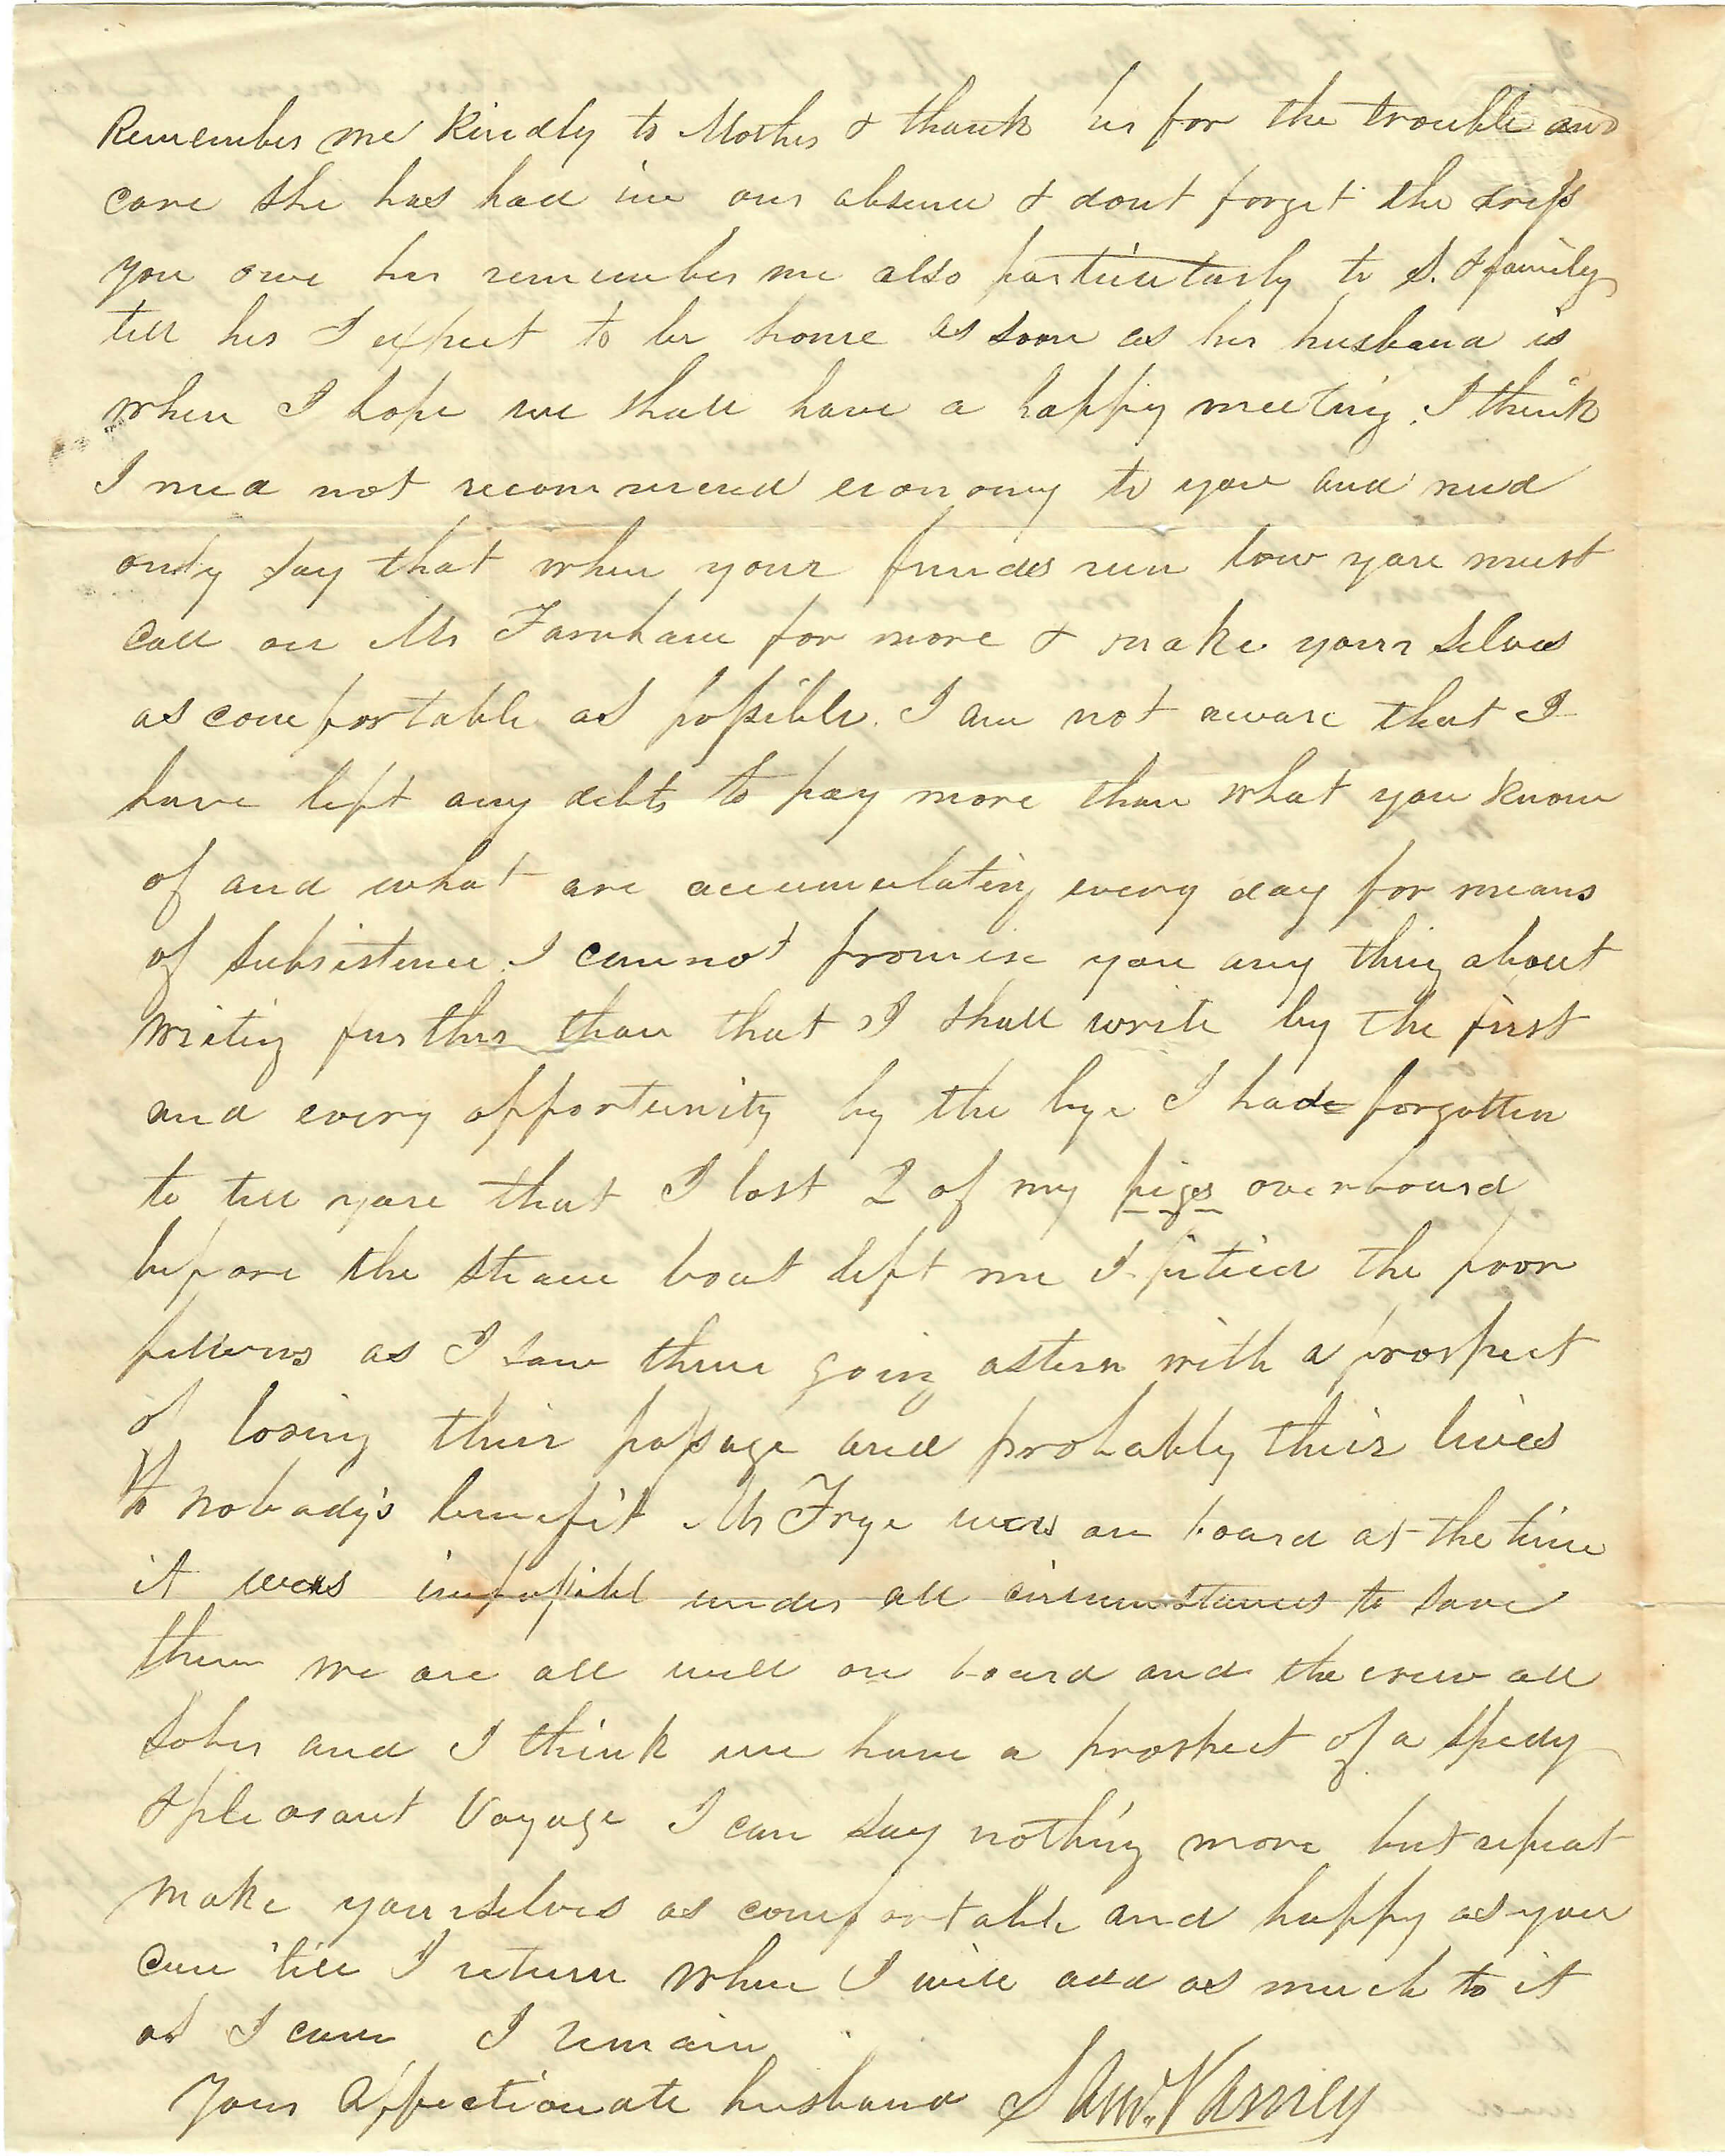 Remember me kindly to Mother & thank her for the trouble and
care she has had in our absence & dont forget the
you owe her remember me also particularly to S. & family
tell her I expect to be home as soon as her husband is
when I hope we shall have a happy meeting. I think
I need not recommend economy to you and need
only say that when your funds run low you must
call on Mr Farnham for more & make yourselves
as comfortable as possible. I am not aware that I
have left any debts to pay more than what you know
of and what are accumulating every day for means
of subsistence. I cannot promise you any thing about
writing further than that I shall write by the first
and every opportunity by the bye I had forgotten
to tell you that I lost 2 of my pigs overboard
before the steam boat left me I pitied the poor
fellows as I saw them going astern with a prospect
of losing their passage and probably their lives
to nobody's benefit Mr Frye was on board at the time
it was impossible under all circumstances to save
them we are all well on board and the crew all
sober and I think we have a prospect of a speedy
& pleasant Voyage I can say nothing more but repeat
make yourselves as comfortable and happy as you
can till I return when I will add as much to it
as I can I remain
Your affectionate husband Saml. Varney